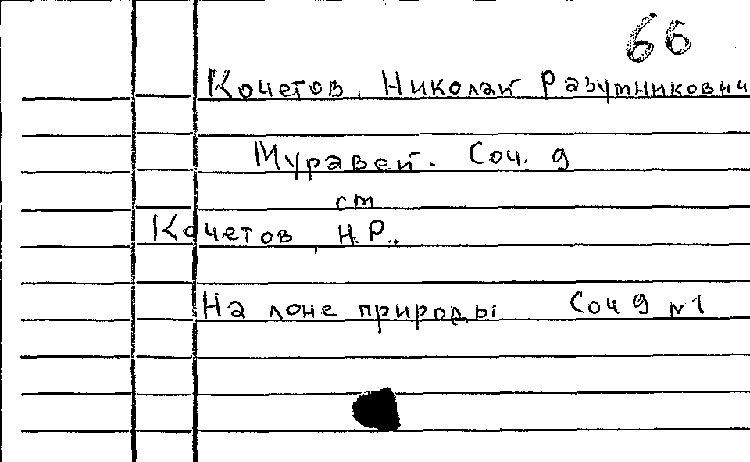 66
Кочетов, Николай Разумникович
Муравей. Соч. 9
см
Кочетов, Н.Р.
На лоне природы Соч 9 №1